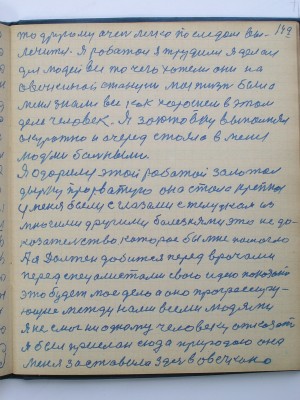 149
то другому очен легко последом вы-
лечити. Я работая я трудился я делал
для людей все то чего хотели они на
станции моя тут была
меня знали все как хорошем в этом
деле человек. Я заготовку выполнял
акуратно и очеред стояла в меня
людми балными.
Я одарил этой работай
она стала крепкой
у меня всеми с глазами с желудкам из
многими другими болезнями это не до-
казателство которое было не помогло
А я должен добится перед врачами
перед специалистами свою идею показать
это будет мое дело а оно прогрессиру-
ющие между нами всеми людями
я не смог ни одному человеку отказат
я был прислан сюда природаю она
меня заставила здес в овечкино